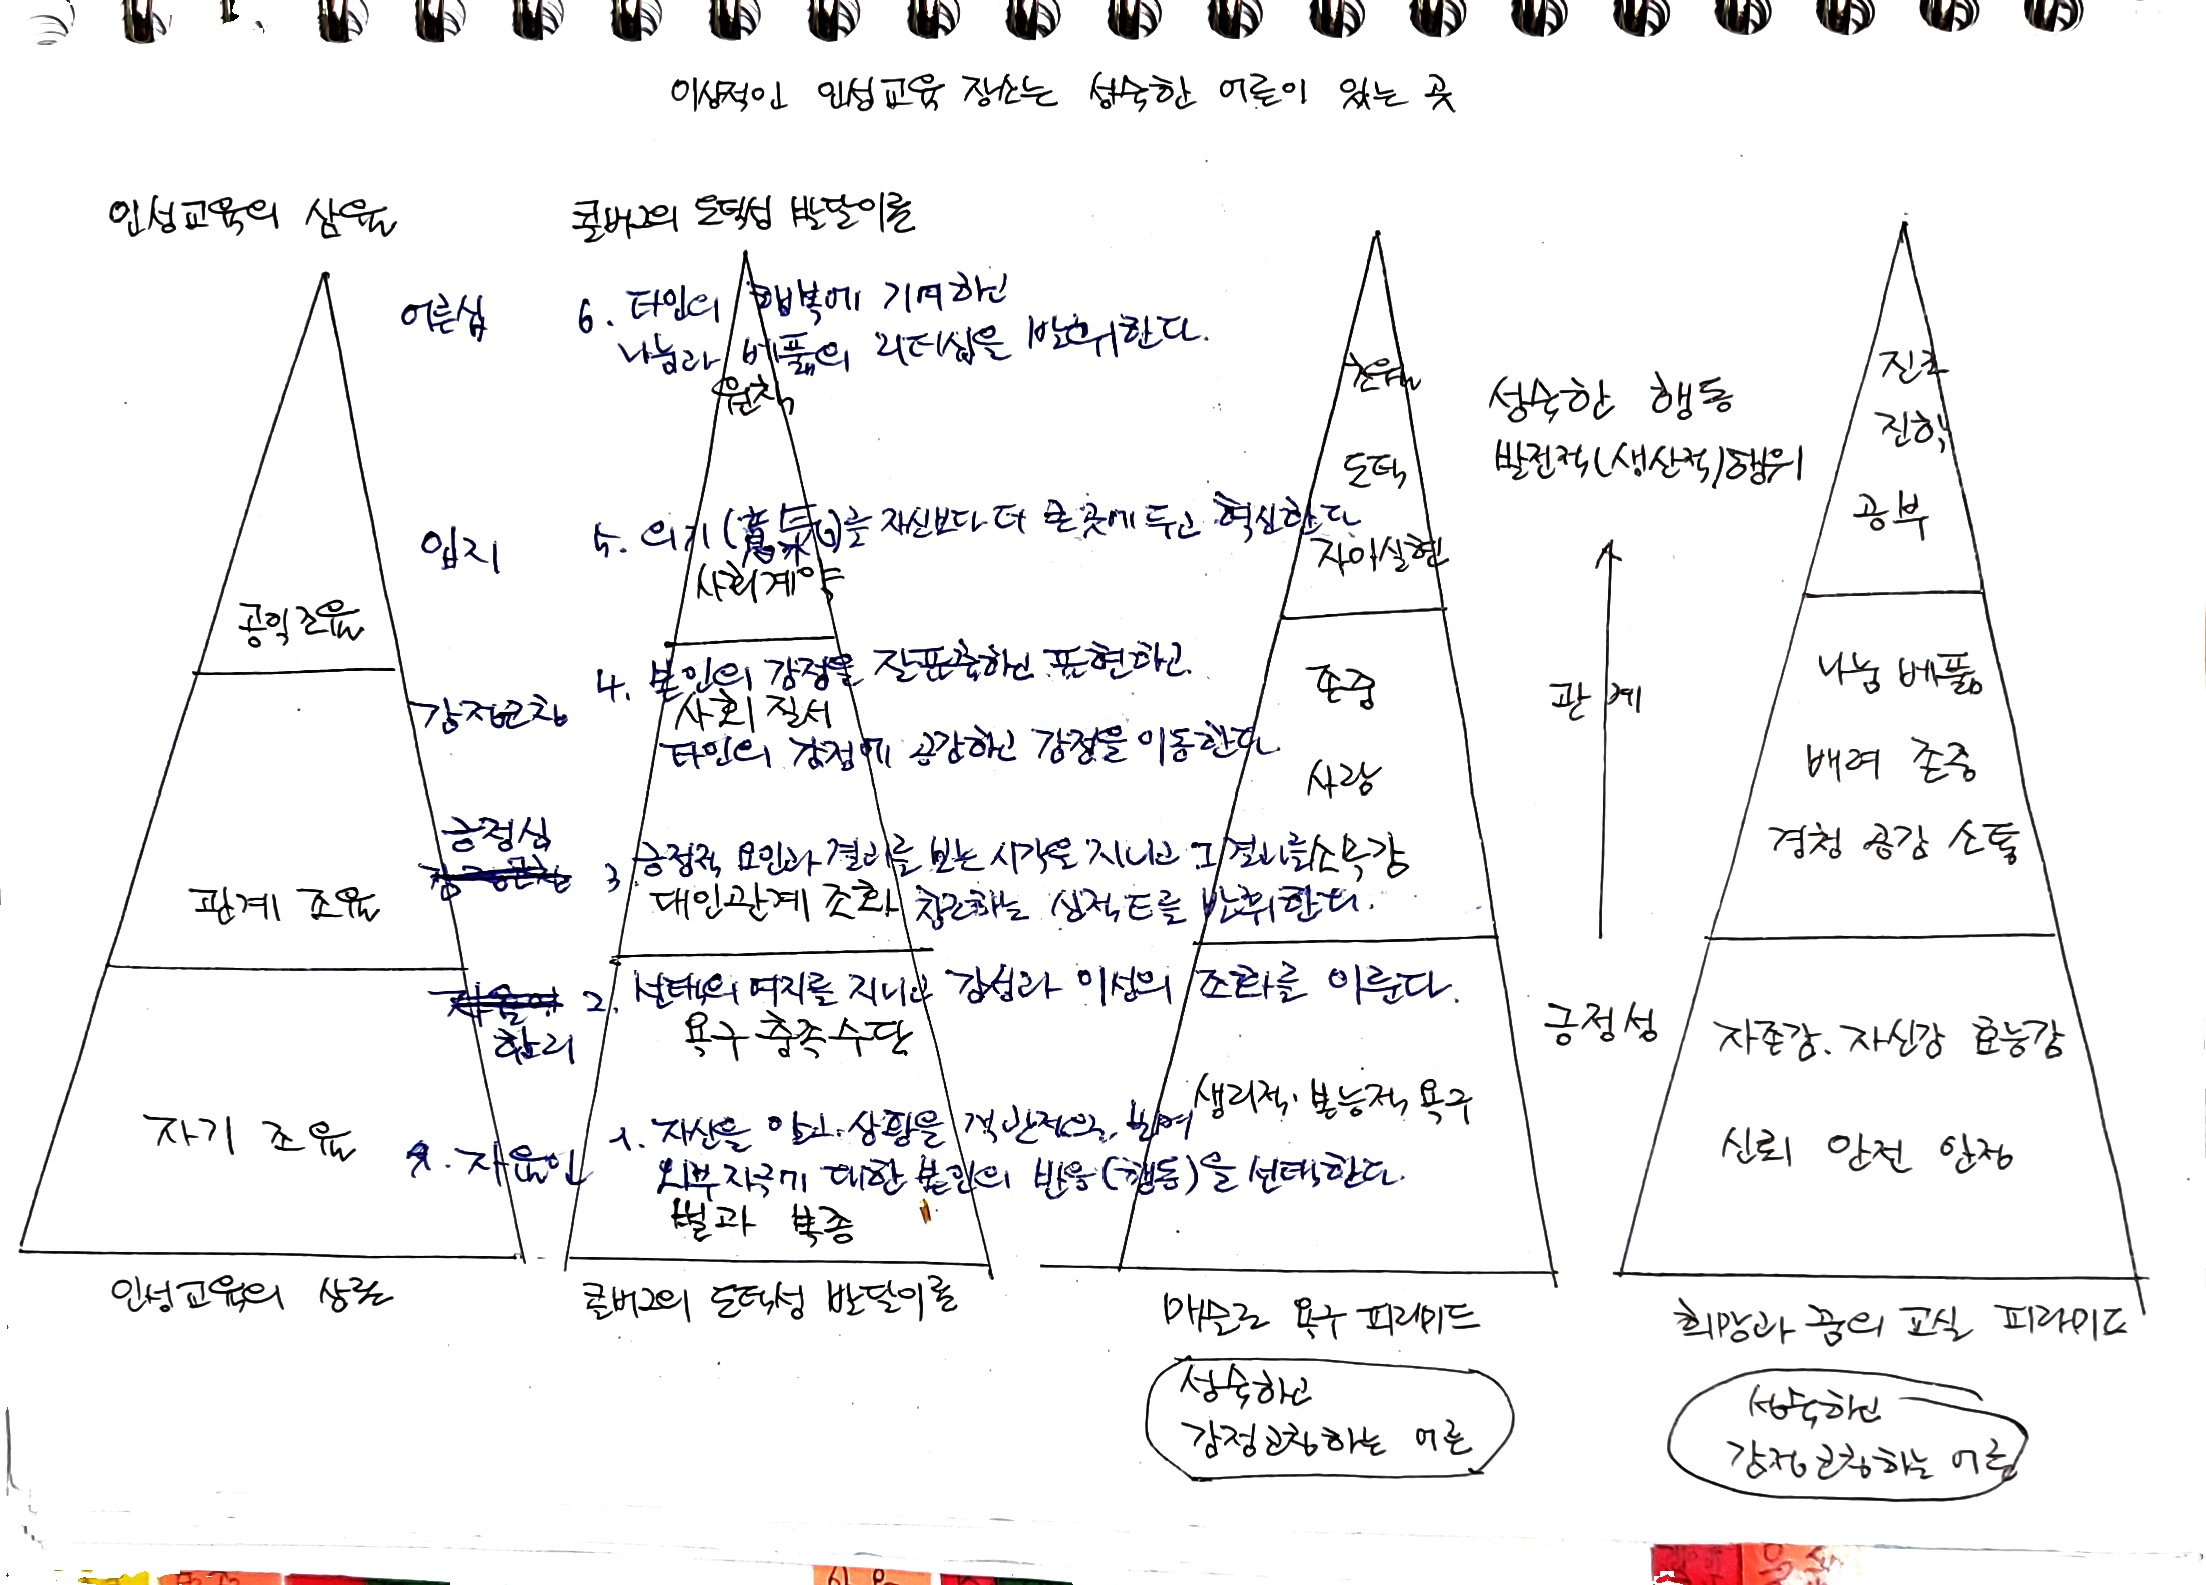 이상적인 인성교육 장소는 성숙한 어른이 있는 곳
인성교육의 삼율
콜버그의 도덕성 발달이론
어른십
6. 타인의 행복에 기여하고
나눔과 베풂의 리더십을 발휘한다.
원칙
입지
5. 의기(意氣)를 자신보다 더 큰 곳에 두고 혁신한다.
사회계약
공익조율
감정코칭
4. 본인의 감정을 잘 표현하고
사회 질서
타인의 감정에 공감하고 감정을 이동한다.
긍정심
3. 긍정적 요인과 결과를 보는 시각을 지니고 그 결과를
대인관계 조화
창조하는 발휘한다.
관계 조율
2. 선택의 여지를 지니고 감성과 이성의 조화를 이룬다.
합리
욕구 충족 수단
자기 조율
자율인
1. 자신을 알고 상황을 객관적으로 보며
외부자극에 대한 본인의 반응(행동)을 선택한다.
벌과 복종
인성교육의 삼율
콜버그의 도덕성 발달이론
초월
도덕
자아실현
존중
사랑
소속감
생리적·본능적 욕구
매슬로 욕구 피라미드
성숙하고
감정코칭하는 어른
성숙한 행동
발전적(생산적)행위
관계
긍정성
진로
진학
공부
나눔 베풂
배려 존중
경청 공감 소통
자존감. 자신감 효능감
신뢰 안전 안정
희망과 꿈의 교실 피라미드
성숙하고
감정코칭하는 어른